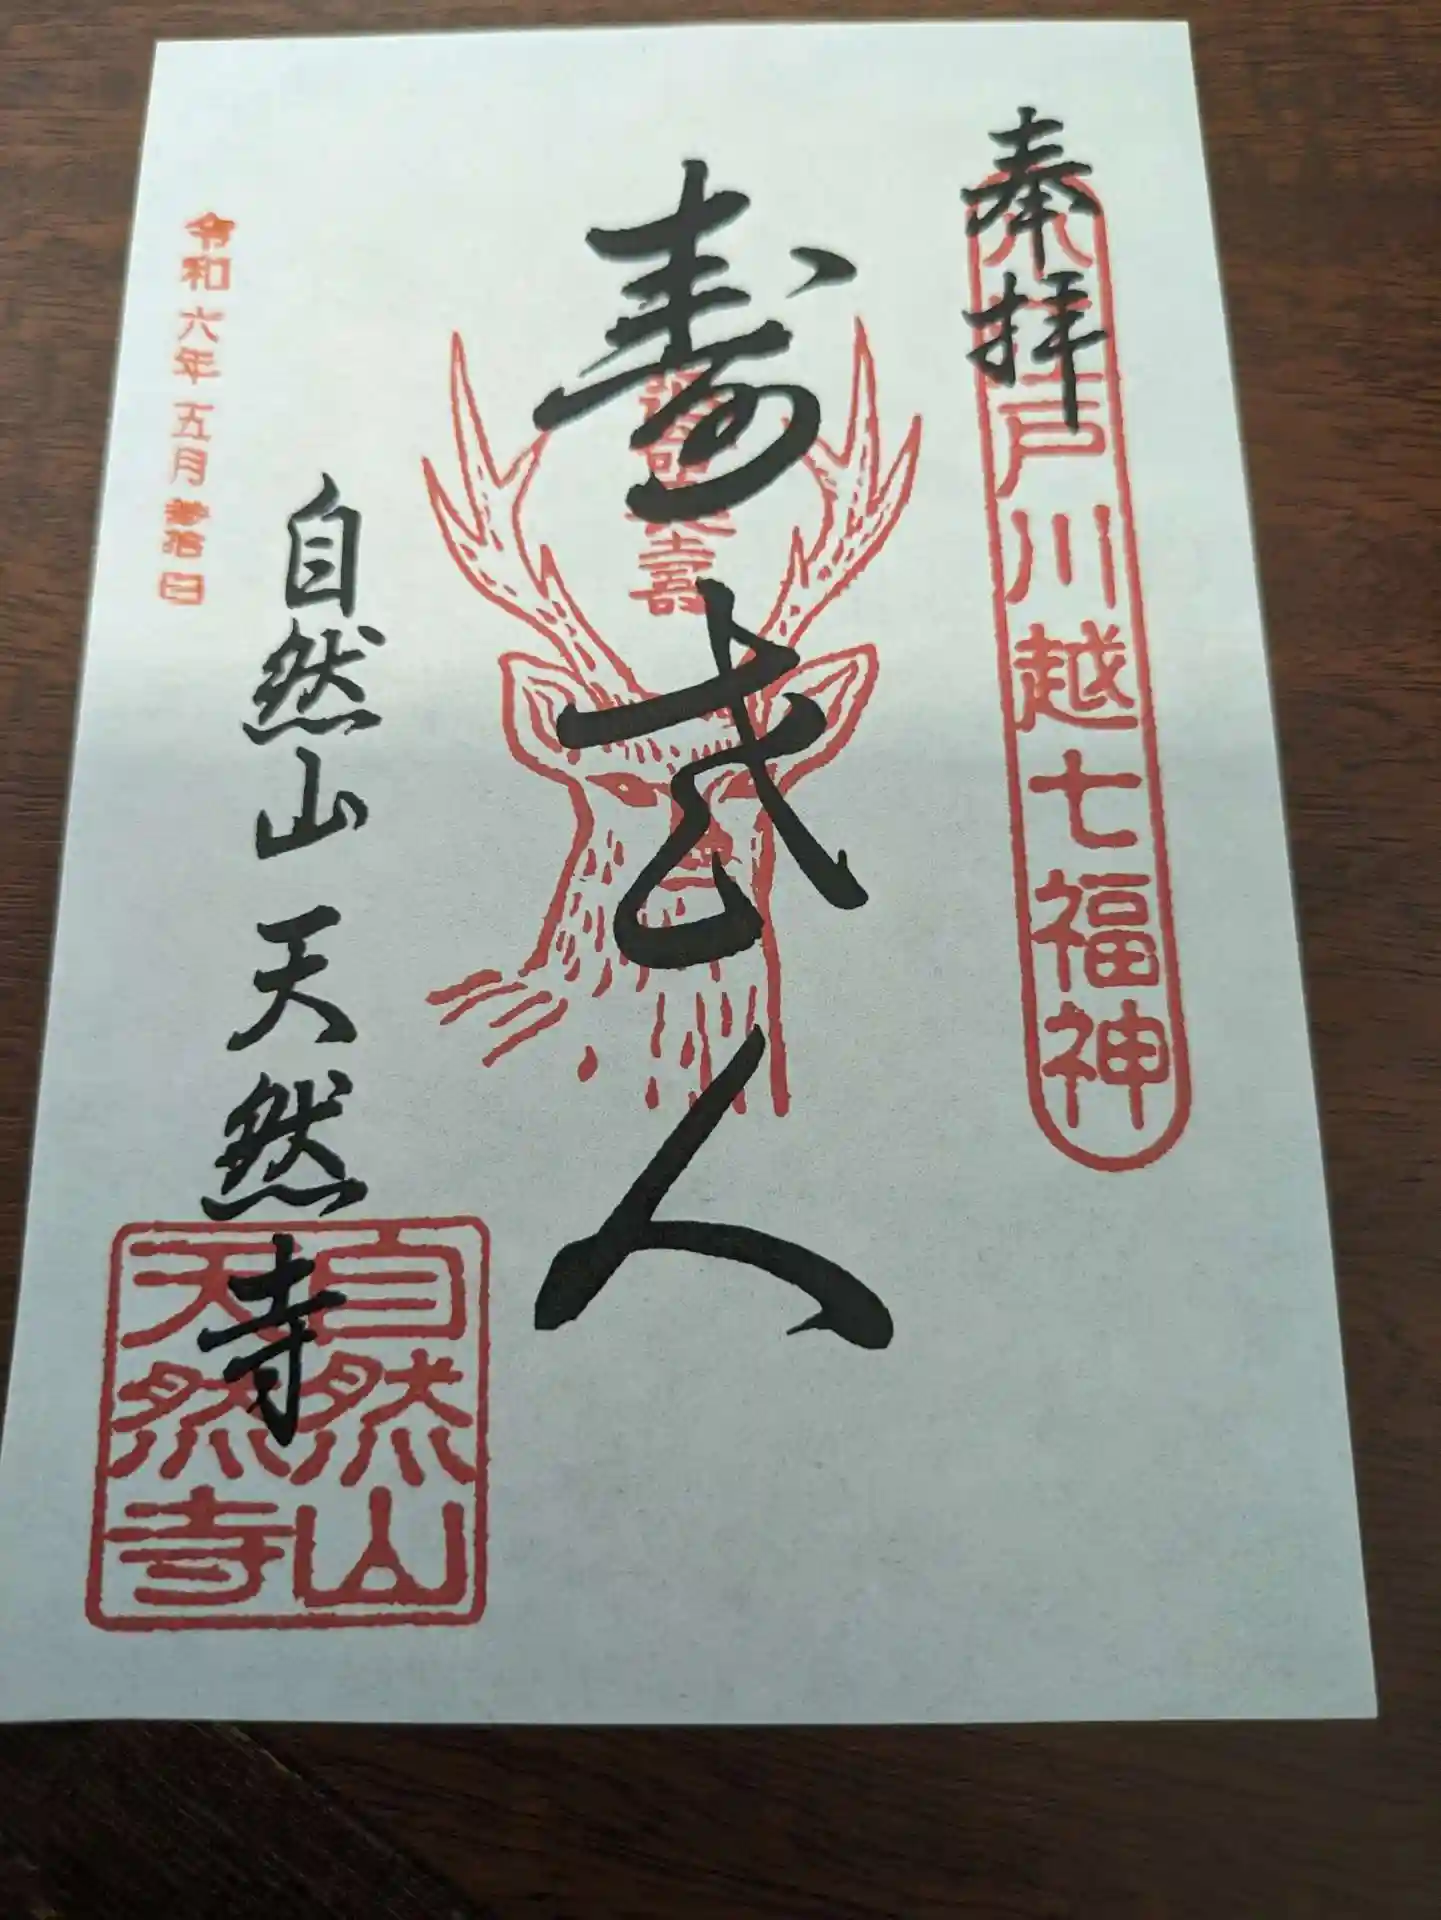 奉拝
小江戸川越七福神
寿老人
自然山 天然寺
自然山
天然寺
令和六年五月参拾日